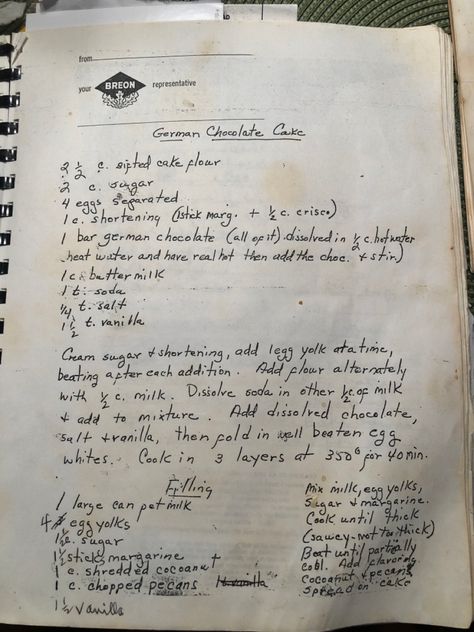 from
your BREON representative
German Chocolate Cake
2 1/2 c. sifted cake flour
2 c. sugar
4 eggs separated
1 c. shortening (1 stick marg. + 1/2 c. crisco)
1 bar german chocolate (all of it) dissolved in 1/2 c. hot water
heat water and have real hot then add the choc. + stir)
1 c. buttermilk
1 t. soda
1/4 t. salt
1 1/2 t. vanilla
Cream sugar + shortening, add 1 egg yolk at a time,
beating after each addition. Add flour alternately
with 1/2 c. milk. Dissolve soda in other 1/2 c. of milk
+ add to mixture. Add dissolved chocolate,
salt + vanilla, then fold in well beaten egg
whites. Cook in 3 layers at 350° for 40 min.
Filling
1 large can pet milk
4 egg yolks
c. sugar
1 1/2 sticks margarine +
1 c. shredded cocoanut
1 c. chopped pecans vanilla
1 1/2 vanilla
Mix milk, egg yolks,
sugar + margarine.
Cook until thick
(saucy-not too thick)
Beat until partially
cool. Add flavoring
Cocoanut + pecans
spread on cake